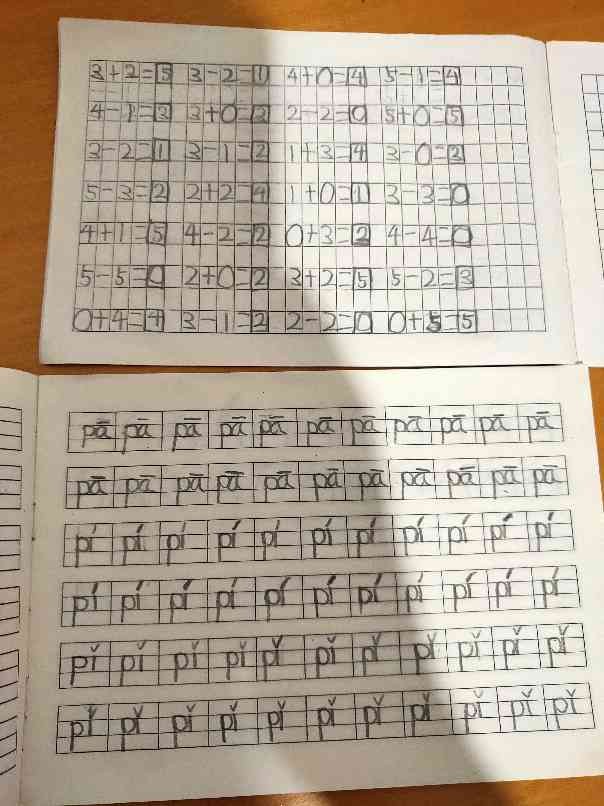 3+2=5 3-2=1 4+0=4 5-1=4
4-1=3 3+0=3 2-2=0 5+0=5
3-2=1 3-1=2 1+3=4 3-0=3
5-3=2 2+2=4 1+0=1 3-3=0
4+1=5 4-2=2 0+3=2 4-4=0
5-5=0 2+0=2 3+2=5 5-2=3
0+4=4 3-1=2 2-2=0 0+5=5
pā pā pā pā pā pā pā pā pā pā pā
pā pā pā pā pā pā pā pā pā pā pā
pí pí pí pí pí pí pí pí pí pí pí
pí pí pí pí pí pí pí pí pí pí pí
pǐ pǐ pǐ pǐ pǐ pǐ pǐ pǐ pǐ pǐ pǐ
pǐ pǐ pǐ pǐ pǐ pǐ pǐ pǐ pǐ pǐ pǐ